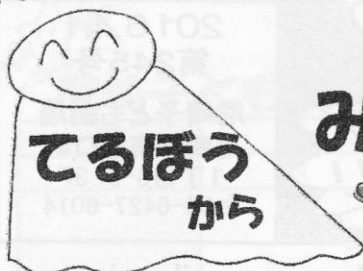 てるぼう
から
み